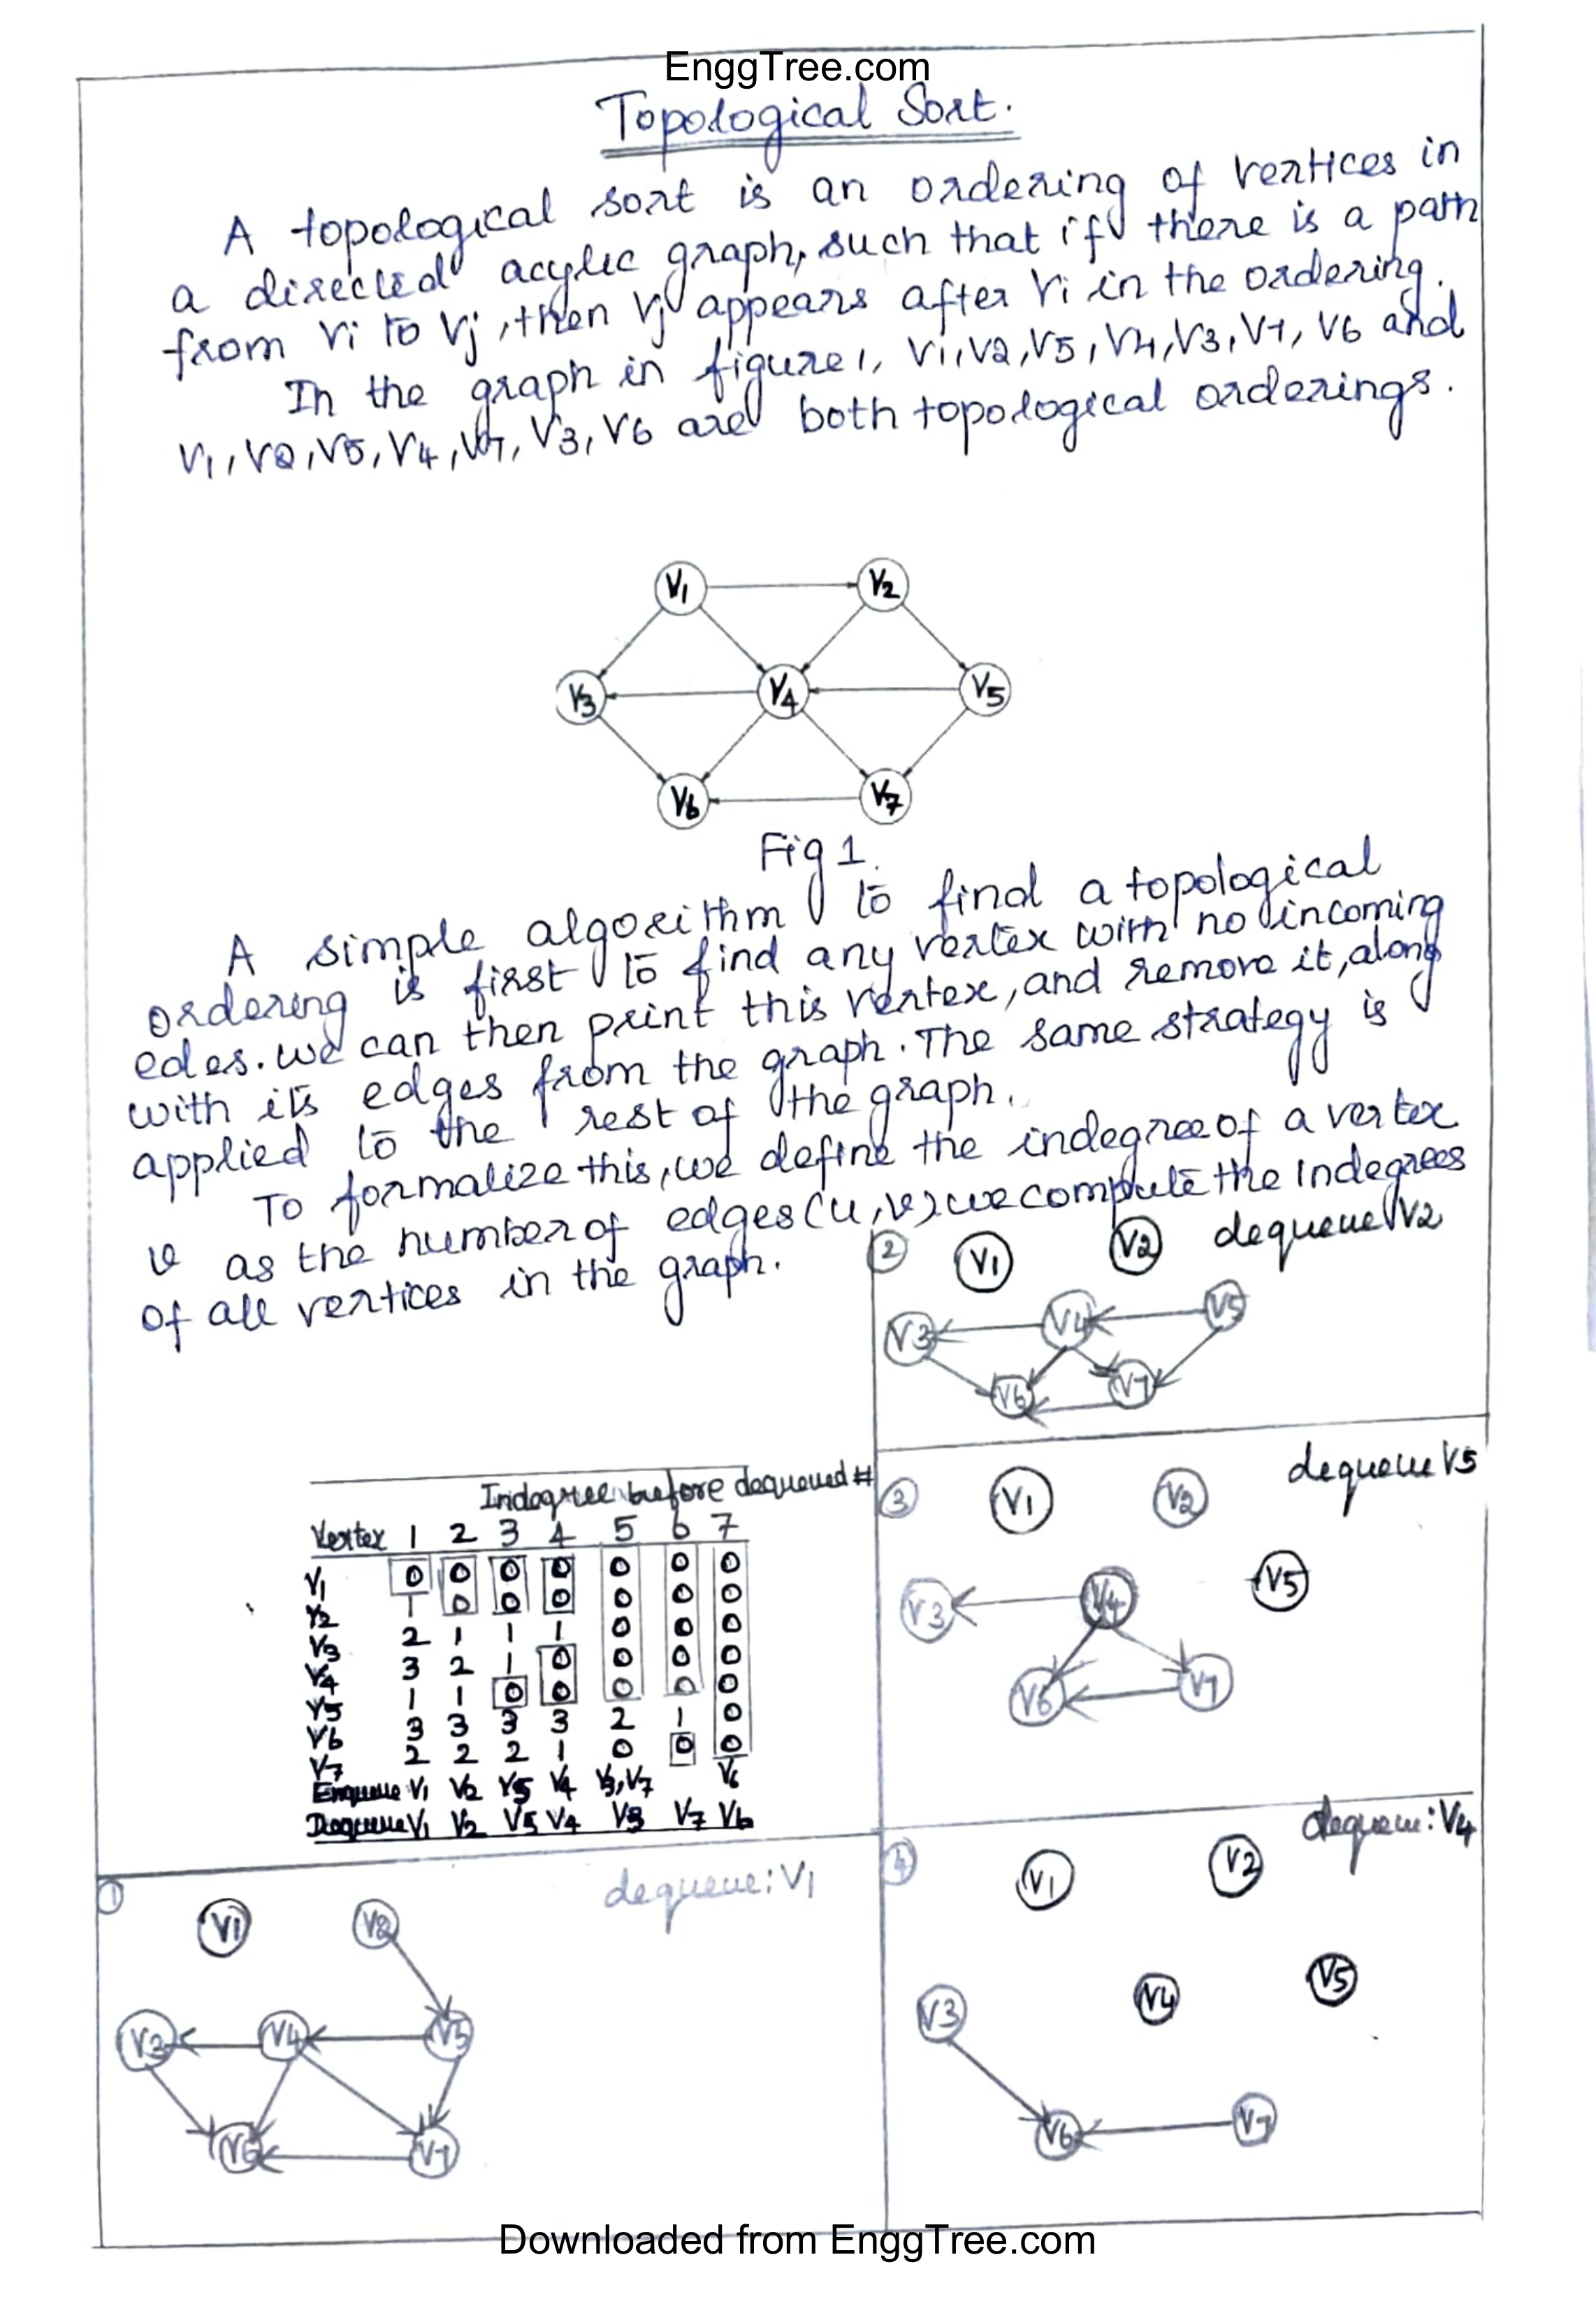 EnggTree.com
Topological Sort.
A topological sort is an ordering of vertices in
a directed acylic graph, such that if there is a path
from Vi to Vj, then Vj appears after Vi in the ordering.
In the graph in figure 1, V1, V2, V5, V4, V3, V7, V6 and
V1, V2, V5, V4, V7, V3, V6 are both topological orderings.
V1 V2
V3 V4 V5
V6 V7
Fig 1.
A simple algorithm to find a topological
ordering is first to find any vertex with no incoming
edes. we can then print this vertex, and remove it, along
with its edges from the graph. The same strategy is
applied to the rest of the graph.
To formalize this, we define the indegree of a vertex
v as the number of edges (u, v) we compute the Indegrees
of all vertices in the graph.
2 V1 V2 dequeue V2
V3 V4 V5
V6 V7
Indegree before dequeued #
Vertex 1 2 3 4 5 6 7
V1 0 0 0 0 0 0 0
V2 1 0 0 0 0 0 0
V3 2 1 1 1 0 0 0
V4 3 2 1 0 0 0 0
V5 1 1 0 0 0 0 0
V6 3 3 3 3 2 1 0
V7 2 2 2 1 0 0 0
Enqueue V1 V2 V5 V4 V3, V7 V6
Dequeue V1 V2 V5 V4 V3 V7 V6
3 dequeue V5
V1 V2
V3 V4 V5
V6 V7
1 dequeue: V1
V1 V2
V3 V4 V5
V6 V7
4 dequeue: V4
V1 V2
V3 V4 V5
V6 V7
Downloaded from EnggTree.com